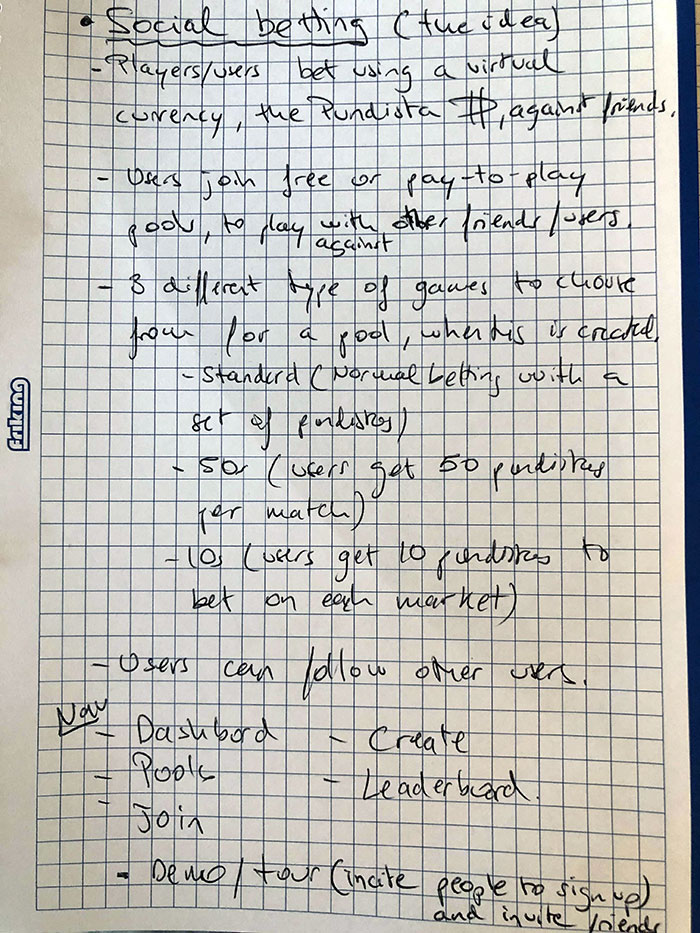 • Social betting (the idea)
- Players/users bet using a virtual
currency, the Pundista ₱, against friends.
- Users join free or pay-to-play
pools, to play with other friends/users.
against
- 3 different type of games to choose
from for a pool, when this is created.
- Standard (Normal betting with a
set of pundistas)
- 50s (users get 50 pundistas
per match)
- 10s (users get 10 pundistas to
bet on each market)
- Users can follow other users.
Nav
- Dashbord - Create
- Pools - Leaderboard.
- Join
- Demo/tour (incite people to sign up)
and invite friends